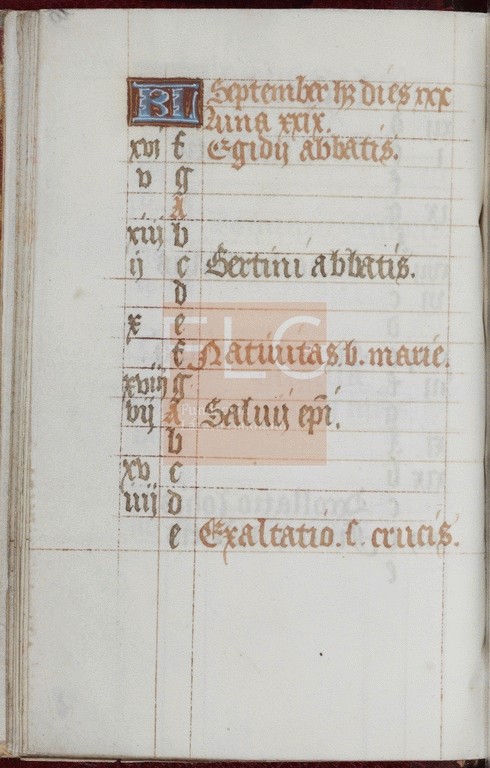 KL September hꝫ dies xxx
Luna xxix.
xvj f Egidij abbatis.
v g
A
xiij b
ij c Bertini abbatis.
d
x e
f Natiuitas. b. marie.
xviij g
vij A Saluij ep̄i.
b
xv c
iiij d
e Exaltatio. s. crucis.
FLC